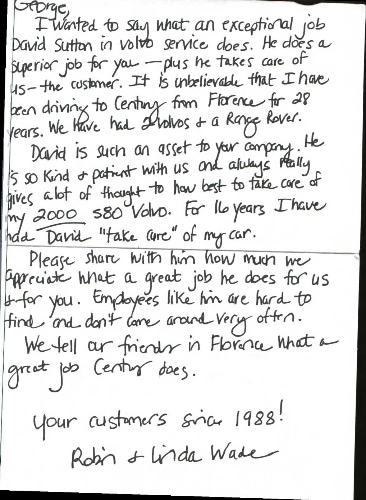 George,
I wanted to say what an exceptional job
David Sutton in Volvo service does. He does a
superior job for you - plus he takes care of
us - the customer. It is unbelievable that I have
been driving to Century from Florence for 28
years. We have had 2 Volvos & a Range Rover.
David is such an asset to your company. He
is so kind & patient with us and always really
gives a lot of thought to how best to take care of
my 2000 S80 Volvo. For 16 years I have
had David "take care" of my car.
Please share with him how much we
appreciate what a great job he does for us
& for you. Employees like him are hard to
find and don't come around very often.
We tell our friends in Florence what a
great job Century does.
Your customers since 1988!
Robin & Linda Wade